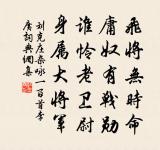 飛將無時命
庸奴有戰勛
誰怜老卫尉
身屬大將軍
刘克庄杂咏一百首李
广詞典網集